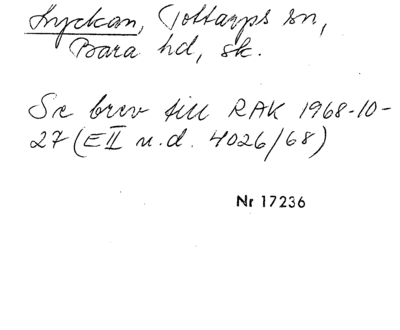 Lyckan, Tottarps sn,
Bara hd, sk.
Se brev till RAK 1968-10-
27 (EII u.d. 4026/68)
Nr 17236